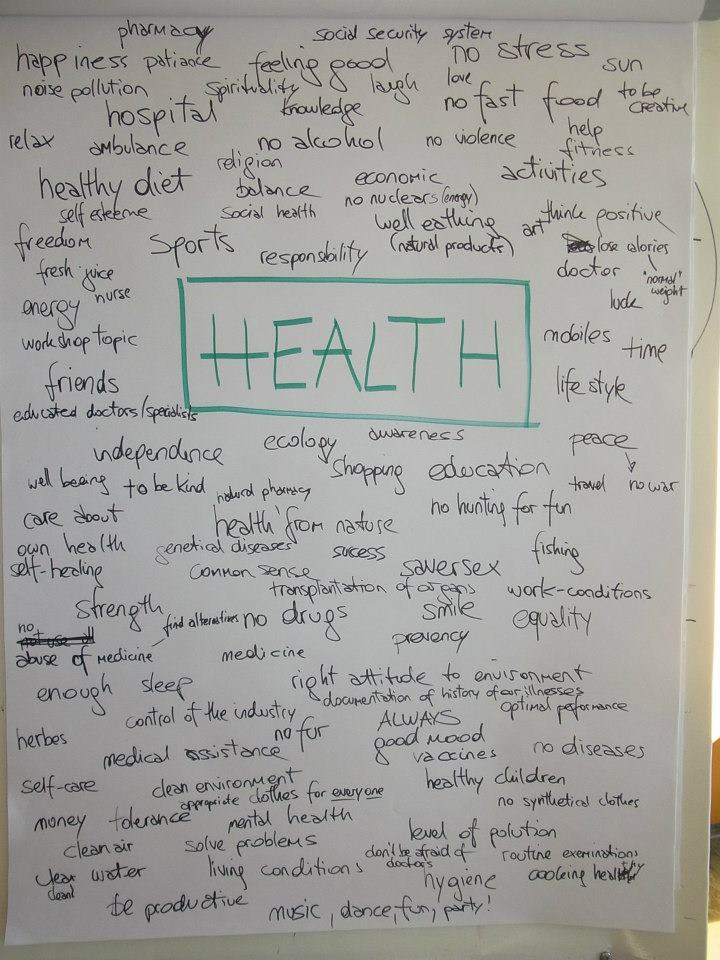 pharmacy social security system
happiness patiance feeling good no stress sun
noise pollution spirituality laugh love
hospital knekledge no fast food to be creative
relax ambulance no alcohol no violence help
religion fitness
healthy diet balance economic activities
self esteeme social health no nuclears (energy)
freedom sports responsbility well eathing (natural products) art think positive
lose calories
"normal" weight
fresh juice doctor
energy nurse luck
HEALTH
workshop topic mobiles time
friends life style
educated doctors/specialists
independence ecology awareness peace
no war
well beeing to be kind natural pharmacy shopping education travel
care about own health health from nature no hunting for fun
genetical diseases sucess fishing
self-healing common sense saversex
transplantation of organs work-conditions
strength find alternatives no drugs smile equality
no abuse of medicine medicine prevency
enough sleep right attitude to environment
documentation of history of our illnesses
control of the industry ALWAYS good mood optimal performance
herbes no fur
medical assistance vaccines no diseases
self-care clean environment healthy children
appropriate clothes for everyone no synthetical clothes
money tolerance mental health
clean air solve problems level of polution
clear water living conditions don't be afraid of doctors routine exeminations
clean hygiene cooking healthy
be productive music, dance, fun, party!